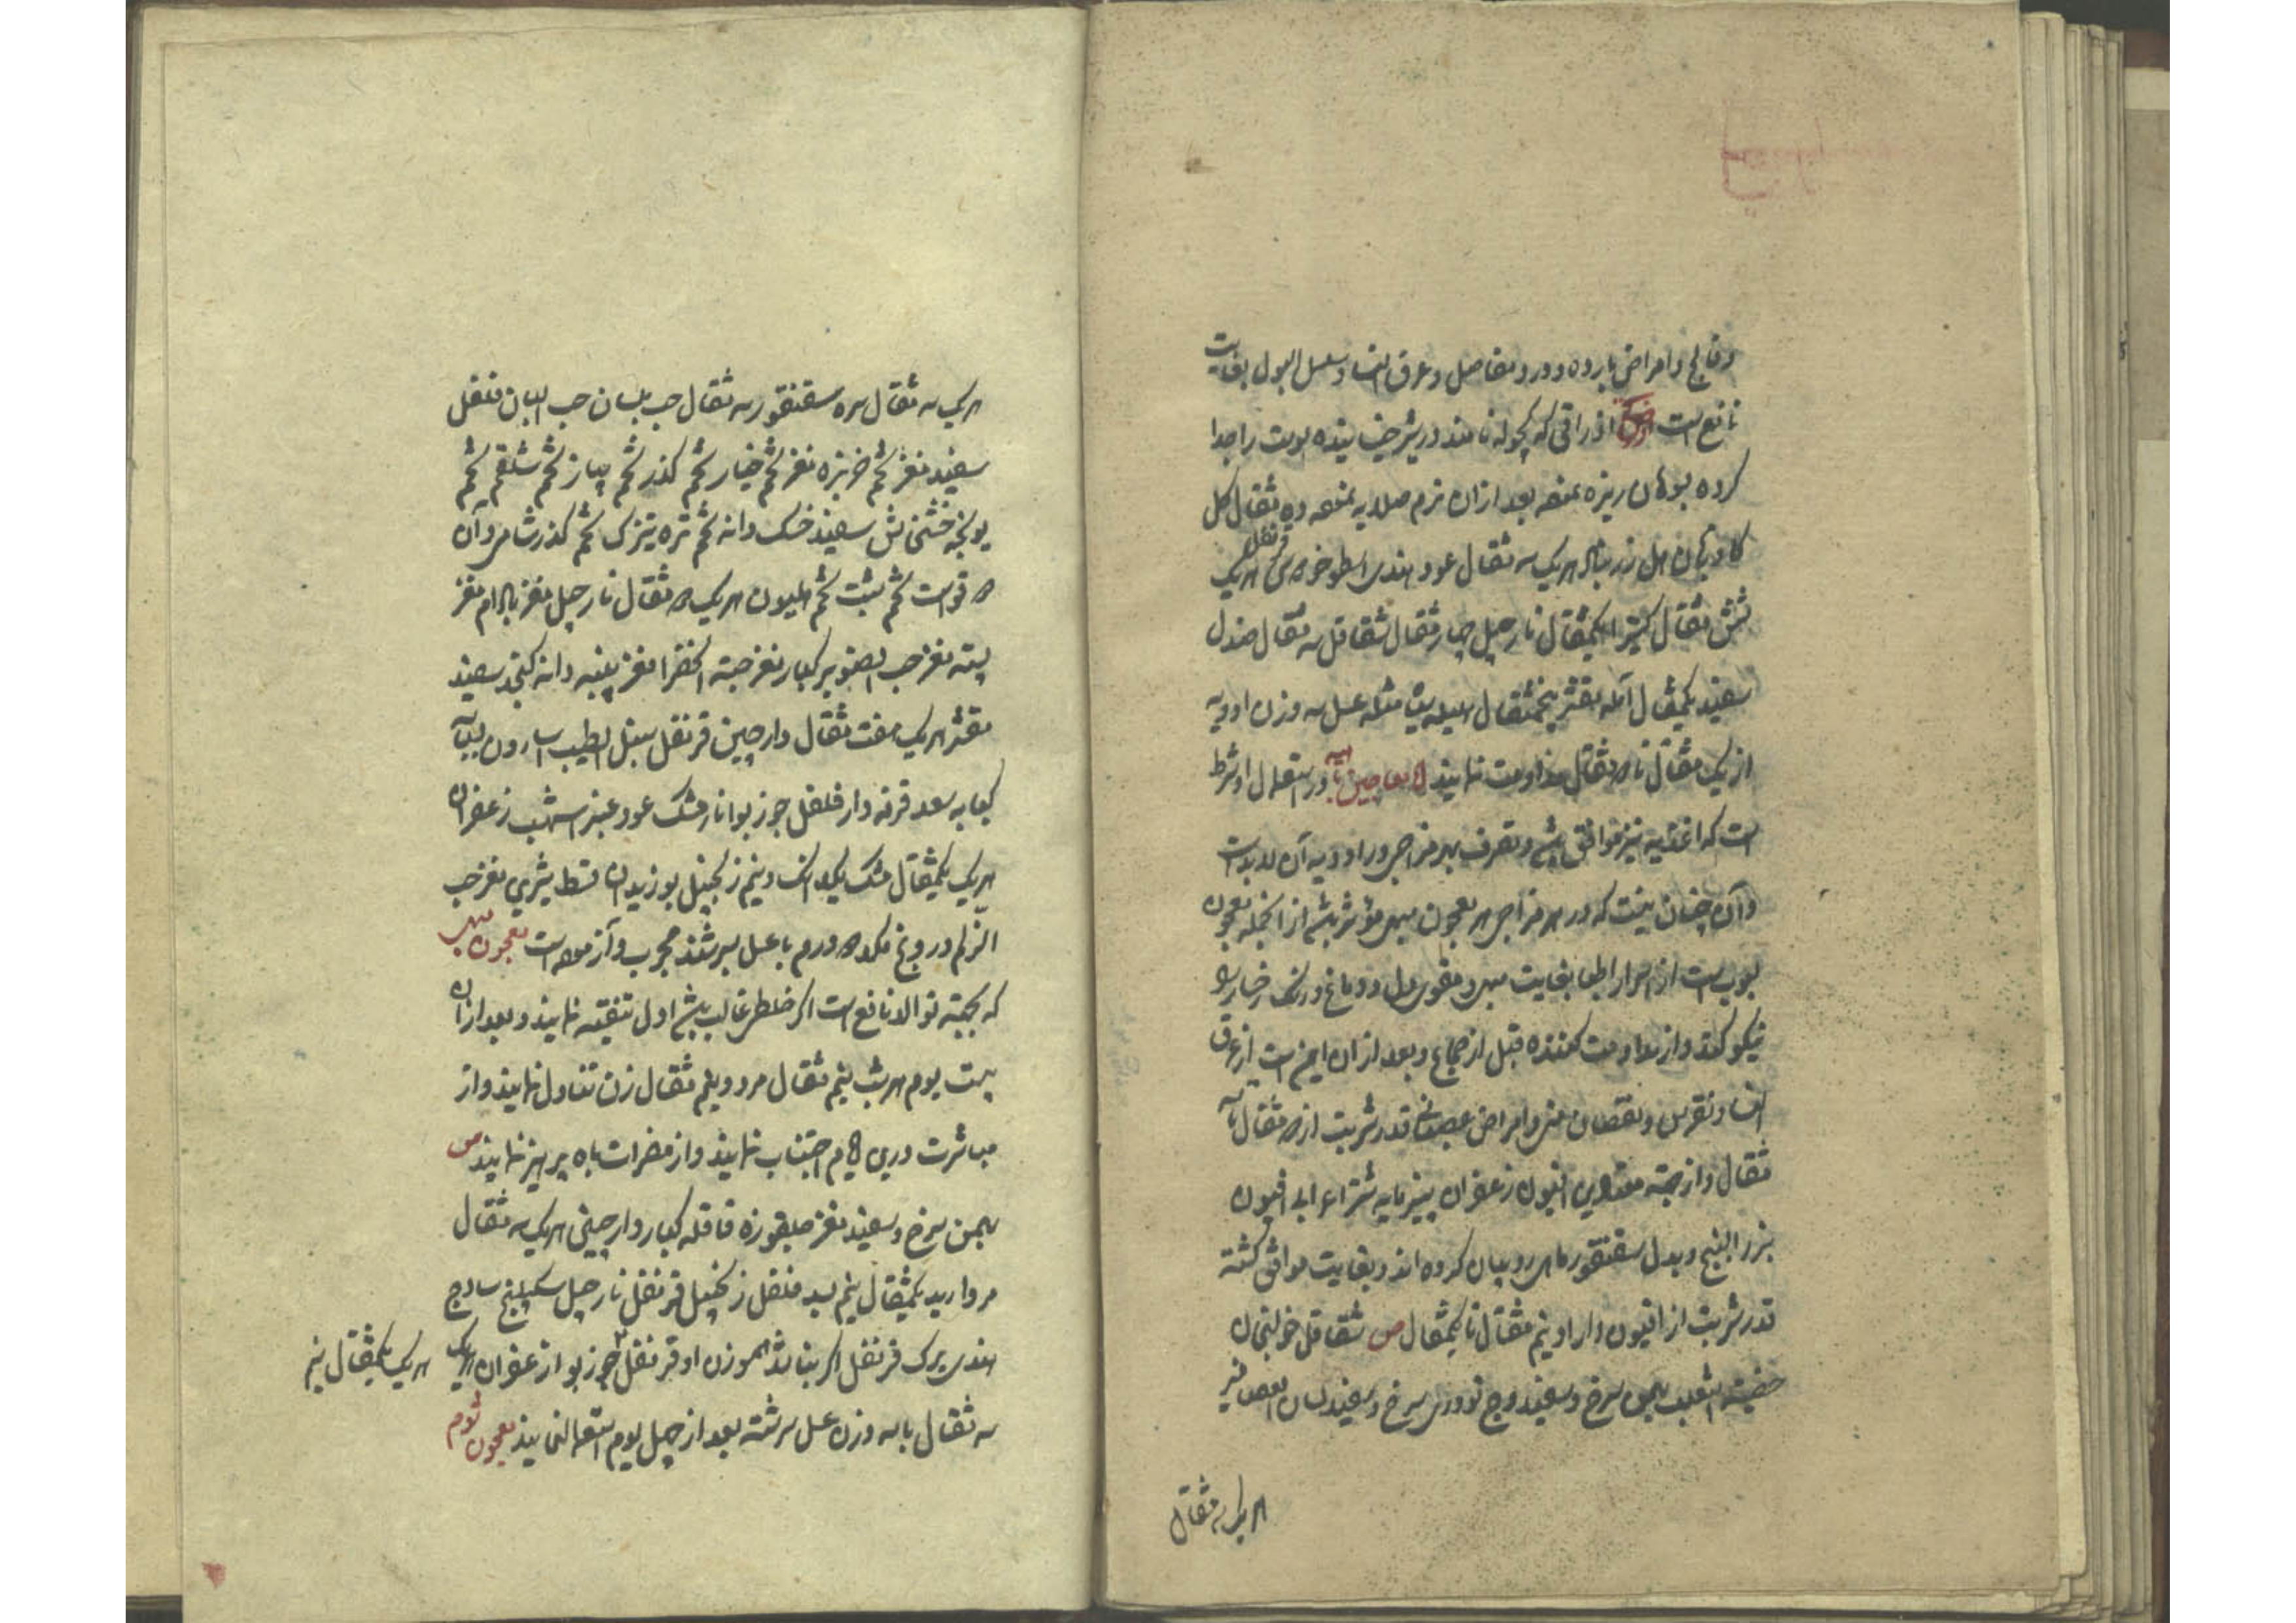 وفالج وامراض بارده ودرد مفاصل وعرق النسا وسلس البول بغایت
نافع است اذراقی که کچوله نامند در شیر خیسانیده پوست را جدا
کرده بسوهان ریزه نموده بعد ازان نرم صلایه نموده ده مثقال کل
کاوزبان هل زرنباد هریک سه مثقال عود هندی اسطوخودوس قرنفل هریک
شش مثقال کتیرا یکمثقال نارجیل چهار مثقال شقاقل سه مثقال صندل
سفید یکمثقال آمله مقشر پنجمثقال هلیله سیاه مثله عسل سه وزن ادویه
از یک مثقال تا دو مثقال مداومت نمایند المعاجین در استعمال او شرط
است که اغذیه نیز موافق باشد وتصرف بهر مزاجی در ادویه آن لابد است
وآن چنان نیست که در هر مزاجی هر معجون مبهی مؤثر باشد از انجمله معجون
لبوب است از اسرار اطبا بغایت مبهی ومقوی دل ودماغ ورنک رخسار را
نیکو کند واز مداومت کننده قبل از جماع وبعد از ان ایمن است از عرق
النسا ونقرس ونقصان منی وامراض عصبانی قدر شربت از دو مثقال تا سه
مثقال واز جهته معتادین افیون زعفران پنیر مایه شتر اعرابی افیون
بزر البنج وبدل سقنقور ماهی روبیان کرده اند وبغایت موافق کشته
قدر شربت از افیون دار او نیم مثقال تا یکمثقال ص شقاقل خولنجان
خصیة الثعلب بهمن سرخ وسفید وج تودری سرخ وسفید لسان العصافیر
هریک سه مثقال
هریک سه مثقال سره سقنقور سه مثقال حب بلسان حب البان فلفل
سفید مغز تخم خربزه مغز تخم خیار تخم کذر تخم پیاز تخم شلغم تخم
یونجه خشخاش سفید خسک دانه تخم تره تیزک تخم کذر شامی وآن
دوقو است تخم شبت تخم هلیون هریک دو مثقال نارجیل مغز بادام مغز
پسته مغز حب الصنوبر کبار مغز حبته الخضرا مغز پنبه دانه کنجد سفید
مقشر هریک هفت مثقال دارچین قرنفل سنبل الطیب اسارون بسباسه
کبابه سعد قرفه دارفلفل جوز بوا نارمشک عود عنبر اشهب زعفران
هریک یکمثقال مشک یکدانک ونیم زنجبیل بوزیدان قسط شیرین مغز حب
الزلم دروغ مکد دو درم با عسل بسرشند مجرب وآزموده است معجون مبهی
که بجهته توالد نافع است اکر خلطی غالب باشد اول تنقیه نمایند وبعد ازان
بیست یوم هر شب نیم مثقال مرد ونیم مثقال زن تناول نمایند واز
مباشرت درین ایام اجتناب نمایند واز مضرات باه پرهیز نمایند ص
بهمن سرخ وسفید مغز چلغوزه قاقله کبار دارچینی هریک سه مثقال
مروارید یکمثقال نیم بسد فلفل زنجبیل قرنفل نارجیل سکبینج سادج
هندی برک قرنفل اکر بناشد هموزن او قرنفل جوز بوا زعفران هریک
هریک یکمثقال نیم
سه مثقال با سه وزن عسل سرشته بعد از چهل یوم استعمال نمایند معجون ثوم